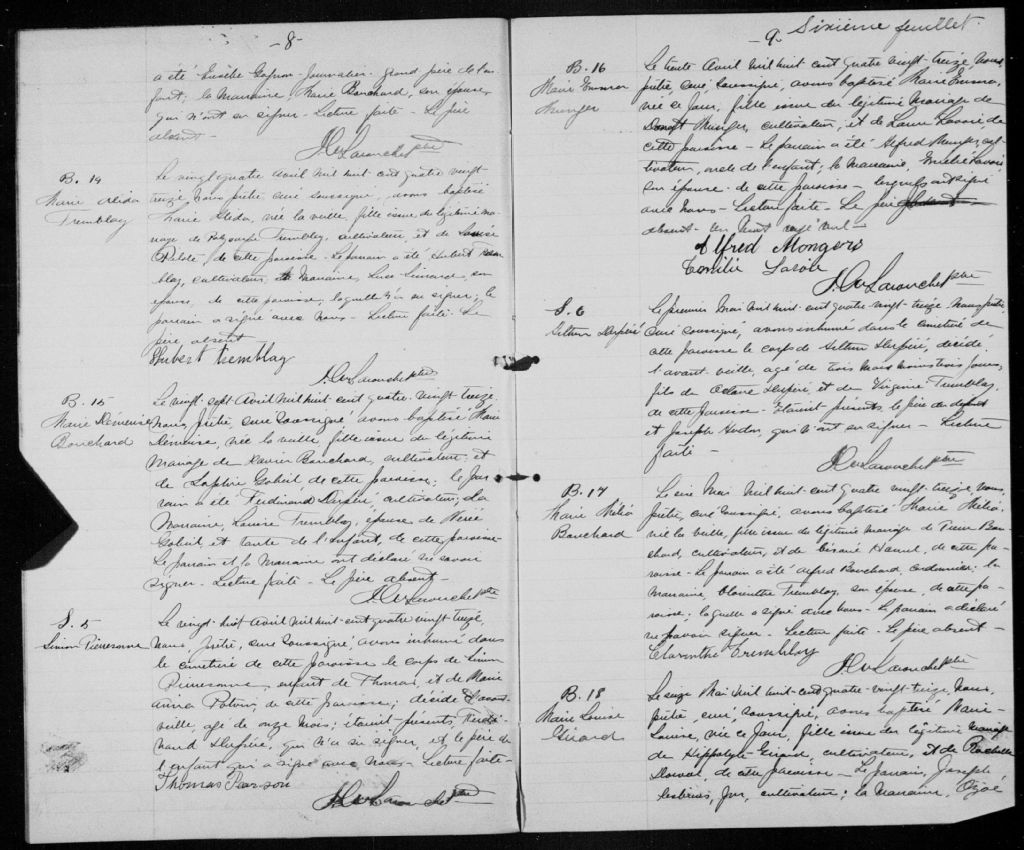 -8-
a été Eusèbe Gagnon journalier grand père de l'en-
fant; la Marraine, Marie Bouchard, son épouse,
qui n'ont su signer - Lecture faite - Le père
absent -
Larouche ptre
B. 14
Marie Alida
Tremblay
Le vingt quatre avril mil huit cent quatre vingt-
treize, Nous prêtre, curé soussigné, avons baptisé
Marie née la veille, fille issue du légitime ma-
riage de Polycarpe Tremblay, cultivateur, et de Louise
Pilote, de cette paroisse - Le parrain a été Hubert Trem-
blay, cultivateur, la Marraine, Luce Simard, son
épouse, de cette paroisse, laquelle n'a su signer; le
parrain a signé avec Nous - Lecture faite - Le
père absent
Hubert tremblay
Larouche ptre
B. 15
Marie Démerise
Bouchard
Le vingt-sept Avril mil huit cent quatre-vingt treize,
Nous, prêtre, curé soussigné avons baptisé Marie
Démerise, née la veille, fille issue du légitime
Mariage de Xavier Bouchard, cultivateur, et
de Sophie Gobeil, de cette paroisse; le par-
rain a été Ferdinand cultivateur; La
Marraine, Louise Tremblay, épouse de
Gobeil, et tante de l'enfant, de cette paroisse -
Le parrain et la Marraine ont déclaré ne savoir
signer - Lecture faite - Le père absent -
Larouche ptre
S. 5
Simon
Le vingt-huit Avril mil huit-cent quatre vingt treize,
Nous, prêtre, curé soussigné, avons inhumé dans
le cimetière de cette paroisse le corps de Simon
enfant de Thomas, et de Marie
anna Potvin, de cette paroisse; décédé l'avant-
veille, agé de onze mois; étaient présents, Ferdi-
nand qui n'a su signer, et le père de
l'enfant qui a signé avec Nous - Lecture faite -
Thomas
Larouche ptre
-9- Sixième feuillet
B. 16
Marie Emma
Munger
Le trente Avril mil huit cent quatre vingt-treize, Nous
prêtre, curé, soussigné, avons baptisé Marie Emma,
née ce jour, fille issue du légitime Mariage de
Donat Munger, cultivateur, et de Laure Lavoie, de
cette paroisse - Le parrain a été Alfred Munger, cul-
tivateur, oncle de l'enfant; la Marraine, Emilie Lavoie,
son épouse de cette paroisse - lesquels ont signé
avec Nous - Lecture faite - Le père
absent - Un mot rayé nul -
Alfred Mongers
Emilie Lavoie
Larouche ptre
S. 6
Le premier Mai mil huit-cent quatre vingt-treize Nous prêtre
curé soussigné, avons inhumé dans le cimetière de
cette paroisse le corps de décédé
l'avant-veille, agé de trois mois moins trois jours,
fils de et de Virginie Tremblay,
de cette paroisse - Etaient présents, le père du défunt
et Joseph Hudon, qui n'ont su signer - Lecture
faite -
Larouche ptre
B. 17
Marie
Bouchard
Le Mai mil huit-cent quatre vingt-treize, nous,
prêtre, curé soussigné, avons baptisé Marie
née la veille, fille issue du légitime mariage de Bou-
chard, cultivateur, et de Césarie Hamel, de cette pa-
roisse - Le parrain a été Alfred Bouchard, cordonnier; la
marraine, Clorinthe Tremblay, son épouse, de cette pa-
roisse; laquelle a signé avec Nous - Le parrain a déclaré
ne pouvoir signer - Lecture faite - Le père absent -
Clarinthe Tremblay
Larouche ptre
B. 18
Marie Louise
Girard
Le seize Mai mil huit-cent quatre-vingt-treize, Nous,
prêtre, curé, soussigné, avons baptisé Marie-
Louise, née ce jour, fille issue du légitime mariage
de Hippolyte Girard, cultivateur, et de Rachelle
de cette paroisse - Le parrain, Joseph
cultivateur; la Marraine, Ozée